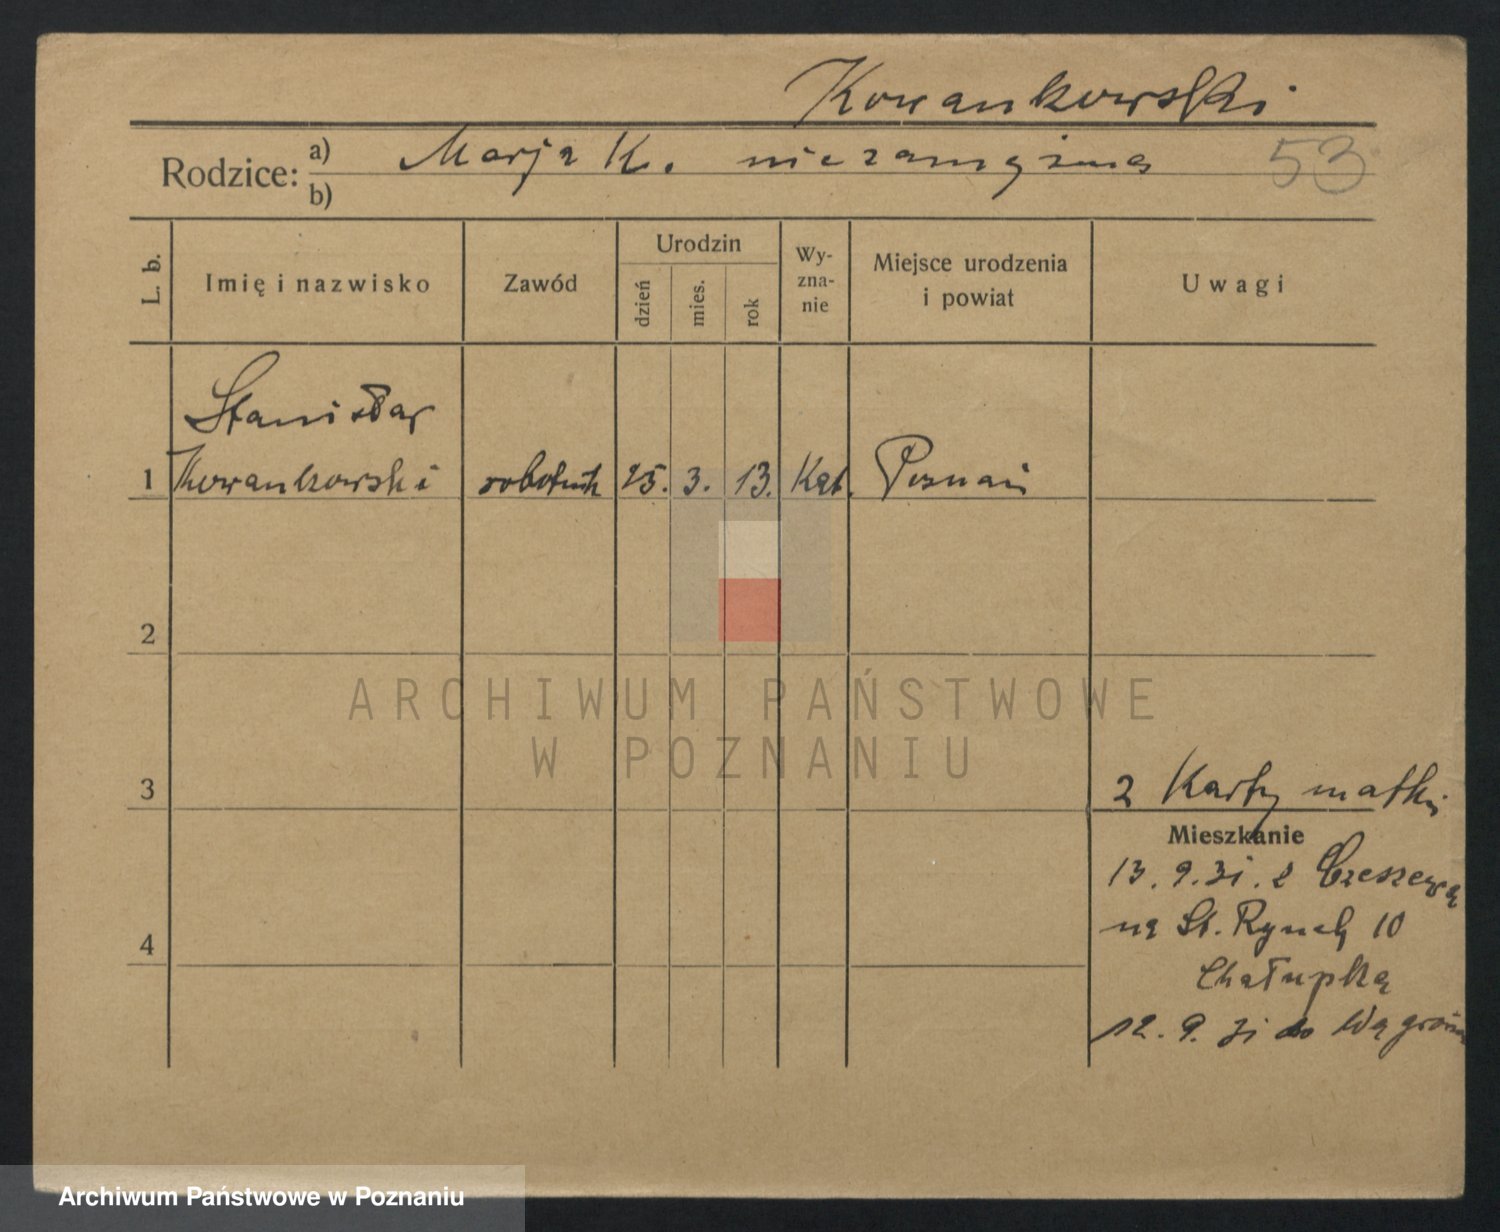 Kowankowski
Rodzice: a) Marja K. niezamężna 53
b)
L. b. Imię i nazwisko Zawód Urodzin dzień mies. rok Wy-zna-nie Miejsce urodzenia i powiat Uwagi
Stanisław
1 Kowankowski robotnik 25. 3. 13. Kat. Poznań
2
ARCHIWUM PAŃSTWOWE
W POZNANIU
3 z Karty matki
Mieszkanie
13. 9. 31. z Czeszewa
na St. Rynek 10
4
Chałupka
12. 9. 31 do Wągrowa
Archiwum Państwowe w Poznaniu